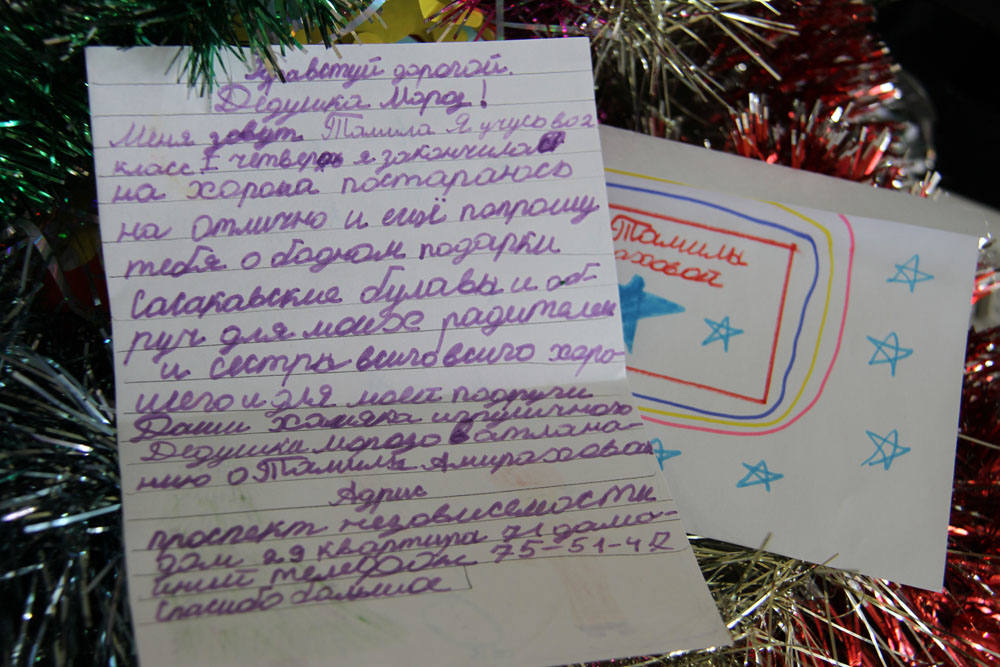 Здравстуй дорогой.
Дедушка Мороз!
Меня зовут Тамила Я учусь во 2
класс I четверь я закончила
на хорошо постараюсь
на отлично и ещё попрошу
тебя о бодном подарки
сасакавские булавы и об
руч для моих радителей
и сестры всиго всиго харо-
шего и для моей подруги
Даши хомяка игрушичного
Дедушки морозо
нию о Тамилы Амираховой
Адрис
проспект независемости
дом 29 квартира 71 дома-
шний телефон 75-51-42
спасибо большое
Тамилы
аховой